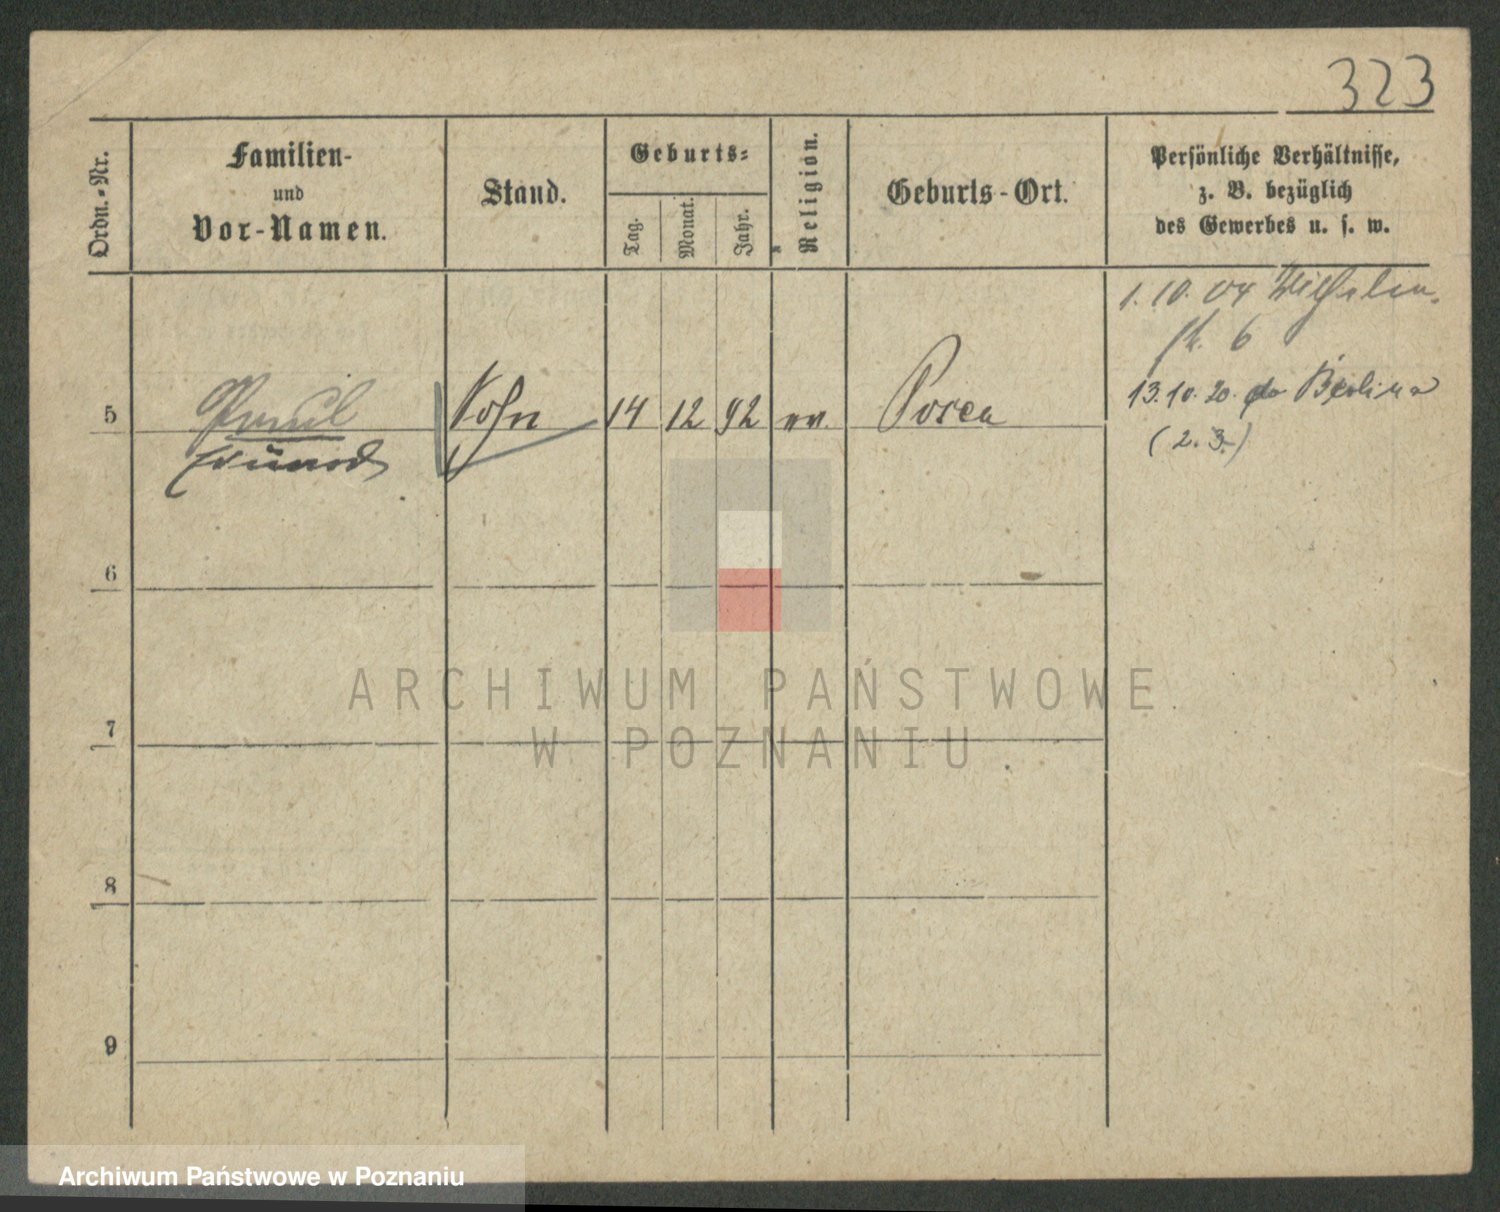 323
Ordn.-Nr.
Familien-
und
Vor-Namen.
Stand.
Geburts-
Tag.
Monat.
Jahr.
Religion.
Geburts-Ort.
Persönliche Verhältnisse,
z. B. bezüglich
des Gewerbes u. s. w.
1. 10. 04 Wilhelm-
str. 6
5 Paul Sohn 14 12 92 Posen
13.10.20. do Berlina
(2.3.)
6
ARCHIWUM PAŃSTWOWE
W POZNANIU
7
8
9
Archiwum Państwowe w Poznaniu